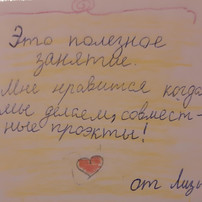 Это полезное
занятие.
Мне нравится когда
мы делаем, совмест-
ные проэкты!
от Лизы